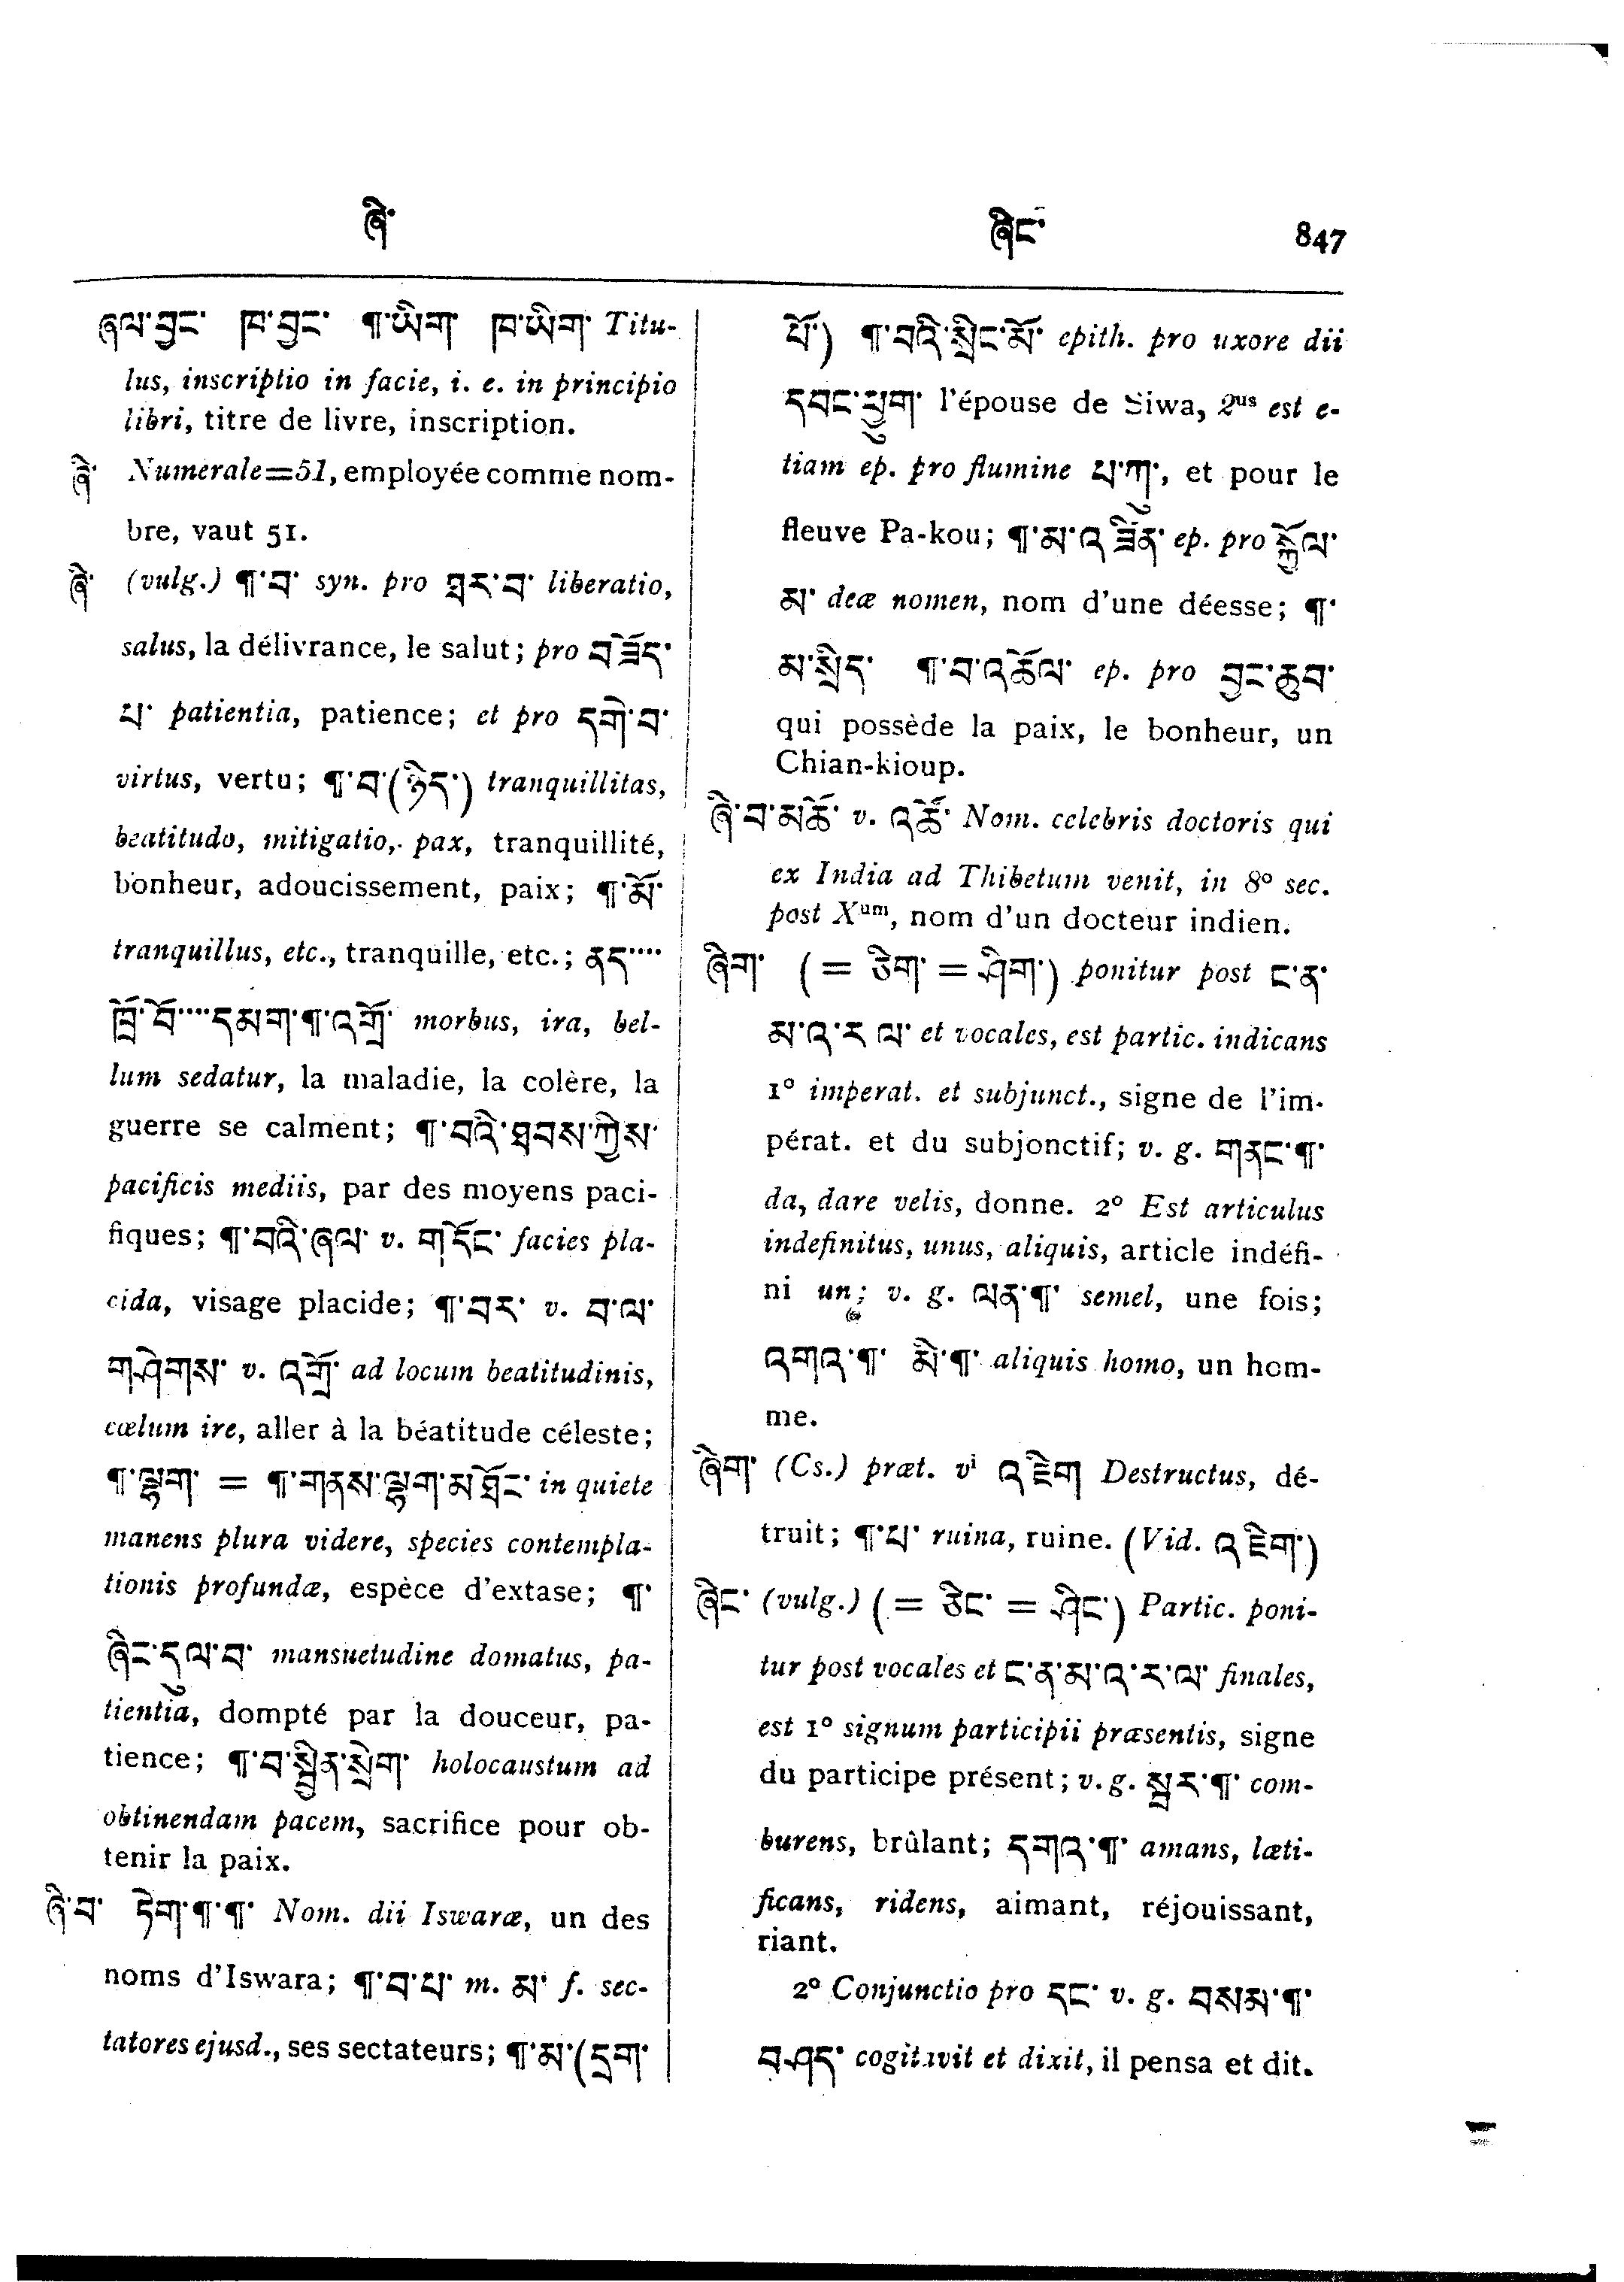 ཞི་
ཞིང་ 847
ཞལ་བྱང་ ཁ་བྱང་ ¶་ཡིག་ ཁ་ཡིག་ Titu-
lus, inscriptio in facie, i. e. in principio
libri, titre de livre, inscription.
ཞི་ Numerale=51, employée comme nom-
bre, vaut 51.
ཞི་ (vulg.) ¶་བ་ syn. pro ཐར་བ་ liberatio,
salus, la délivrance, le salut; pro བཟོད་
པ་ patientia, patience; et pro དགེ་བ་
virtus, vertu; ¶་བ་(ཉིད་) tranquillitas,
beatitudo, mitigatio, pax, tranquillité,
bonheur, adoucissement, paix; ¶་མོ་
tranquillus, etc., tranquille, etc.; ནད་····
ཁྲོ་བོ་····དམག་¶་འགྲོ་ morbus, ira, bel-
lum sedatur, la maladie, la colère, la
guerre se calment; ¶་བའི་ཐབས་ཀྱིས་
pacificis mediis, par des moyens paci-
fiques; ¶་བའི་ཞལ་ v. གདོང་ facies pla-
cida, visage placide; ¶་བར་ v. བ་ལ་
གཤེགས་ v. འགྲོ་ ad locum beatitudinis,
cœlum ire, aller à la béatitude céleste;
¶་ལྷག་ = ¶་གནས་ལྷག་མཐོང་ in quiete
manens plura videre, species contempla-
tionis profundæ, espèce d'extase; ¶་
ཞིང་དུལ་བ་ mansuetudine domatus, pa-
tientia, dompté par la douceur, pa-
tience; ¶་བ་སྦྱིན་སྲེག་ holocaustum ad
obtinendam pacem, sacrifice pour ob-
tenir la paix.
ཞི་བ་ ཏིག་¶་¶་ Nom. dii Iswaræ, un des
noms d'Iswara; ¶་བ་པ་ m. མ་ f. sec-
tatores ejusd., ses sectateurs; ¶་མ་(དྲག་
པོ་) ¶་བའི་སྲིང་མོ་ epith. pro uxore dii
དབང་ཕྱུག་ l'épouse de Siwa, 2us est e-
tiam ep. pro flumine པ་ཀུ་, et pour le
fleuve Pa-kou; ¶་མ་འཛིན་ ep. pro སྒྲོལ་
མ་ deæ nomen, nom d'une déesse; ¶་
མ་སྲིད་ ¶་བ་འཚོལ་ ep. pro བྱང་ཆུབ་
qui possède la paix, le bonheur, un
Chian-kioup.
ཞི་བ་མཚོ་ v. འཚོ་ Nom. celebris doctoris qui
ex India ad Thibetum venit, in 8º sec.
post Xum, nom d'un docteur indien.
ཞིག་ (= ཅིག་ = ཤིག་) ponitur post ང་ན་
མ་འ་ར་ལ་ et vocales, est partic. indicans
1º imperat. et subjunct., signe de l'im-
pérat. et du subjonctif; v. g. གནང་¶་
da, dare velis, donne. 2º Est articulus
indefinitus, unus, aliquis, article indéfi-
ni un; v. g. ལན་¶་ semel, une fois;
འགའ་¶་ མི་¶་ aliquis homo, un hom-
me.
ཞིག་ (Cs.) præt. vi འཇིག Destructus, dé-
truit; ¶་པ་ ruina, ruine. (Vid. འཇིག་)
ཞིང་ (vulg.) (= ཅིང་ = ཤིང་) Partic. poni-
tur post vocales et ང་ན་མ་འ་ར་ལ་ finales,
est 1º signum participii præsentis, signe
du participe présent; v. g. སྦར་¶་ com-
burens, brûlant; དགའ་¶་ amans, læti-
ficans, ridens, aimant, réjouissant,
riant.
2º Conjunctio pro དང་ v. g. བསམ་¶་
བཤད་ cogitavit et dixit, il pensa et dit.